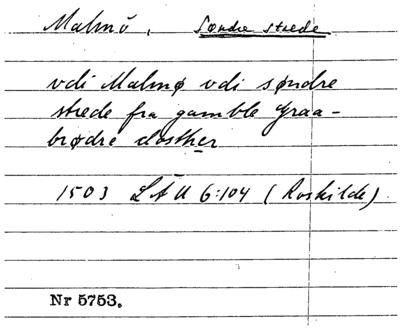 Malmö, Søndre strede
vdi Malmø vdi søndre
strede fra gamble Graa-
brødre closther
1503 LÅU 6:104 (Roskilde)
Nr 5753.